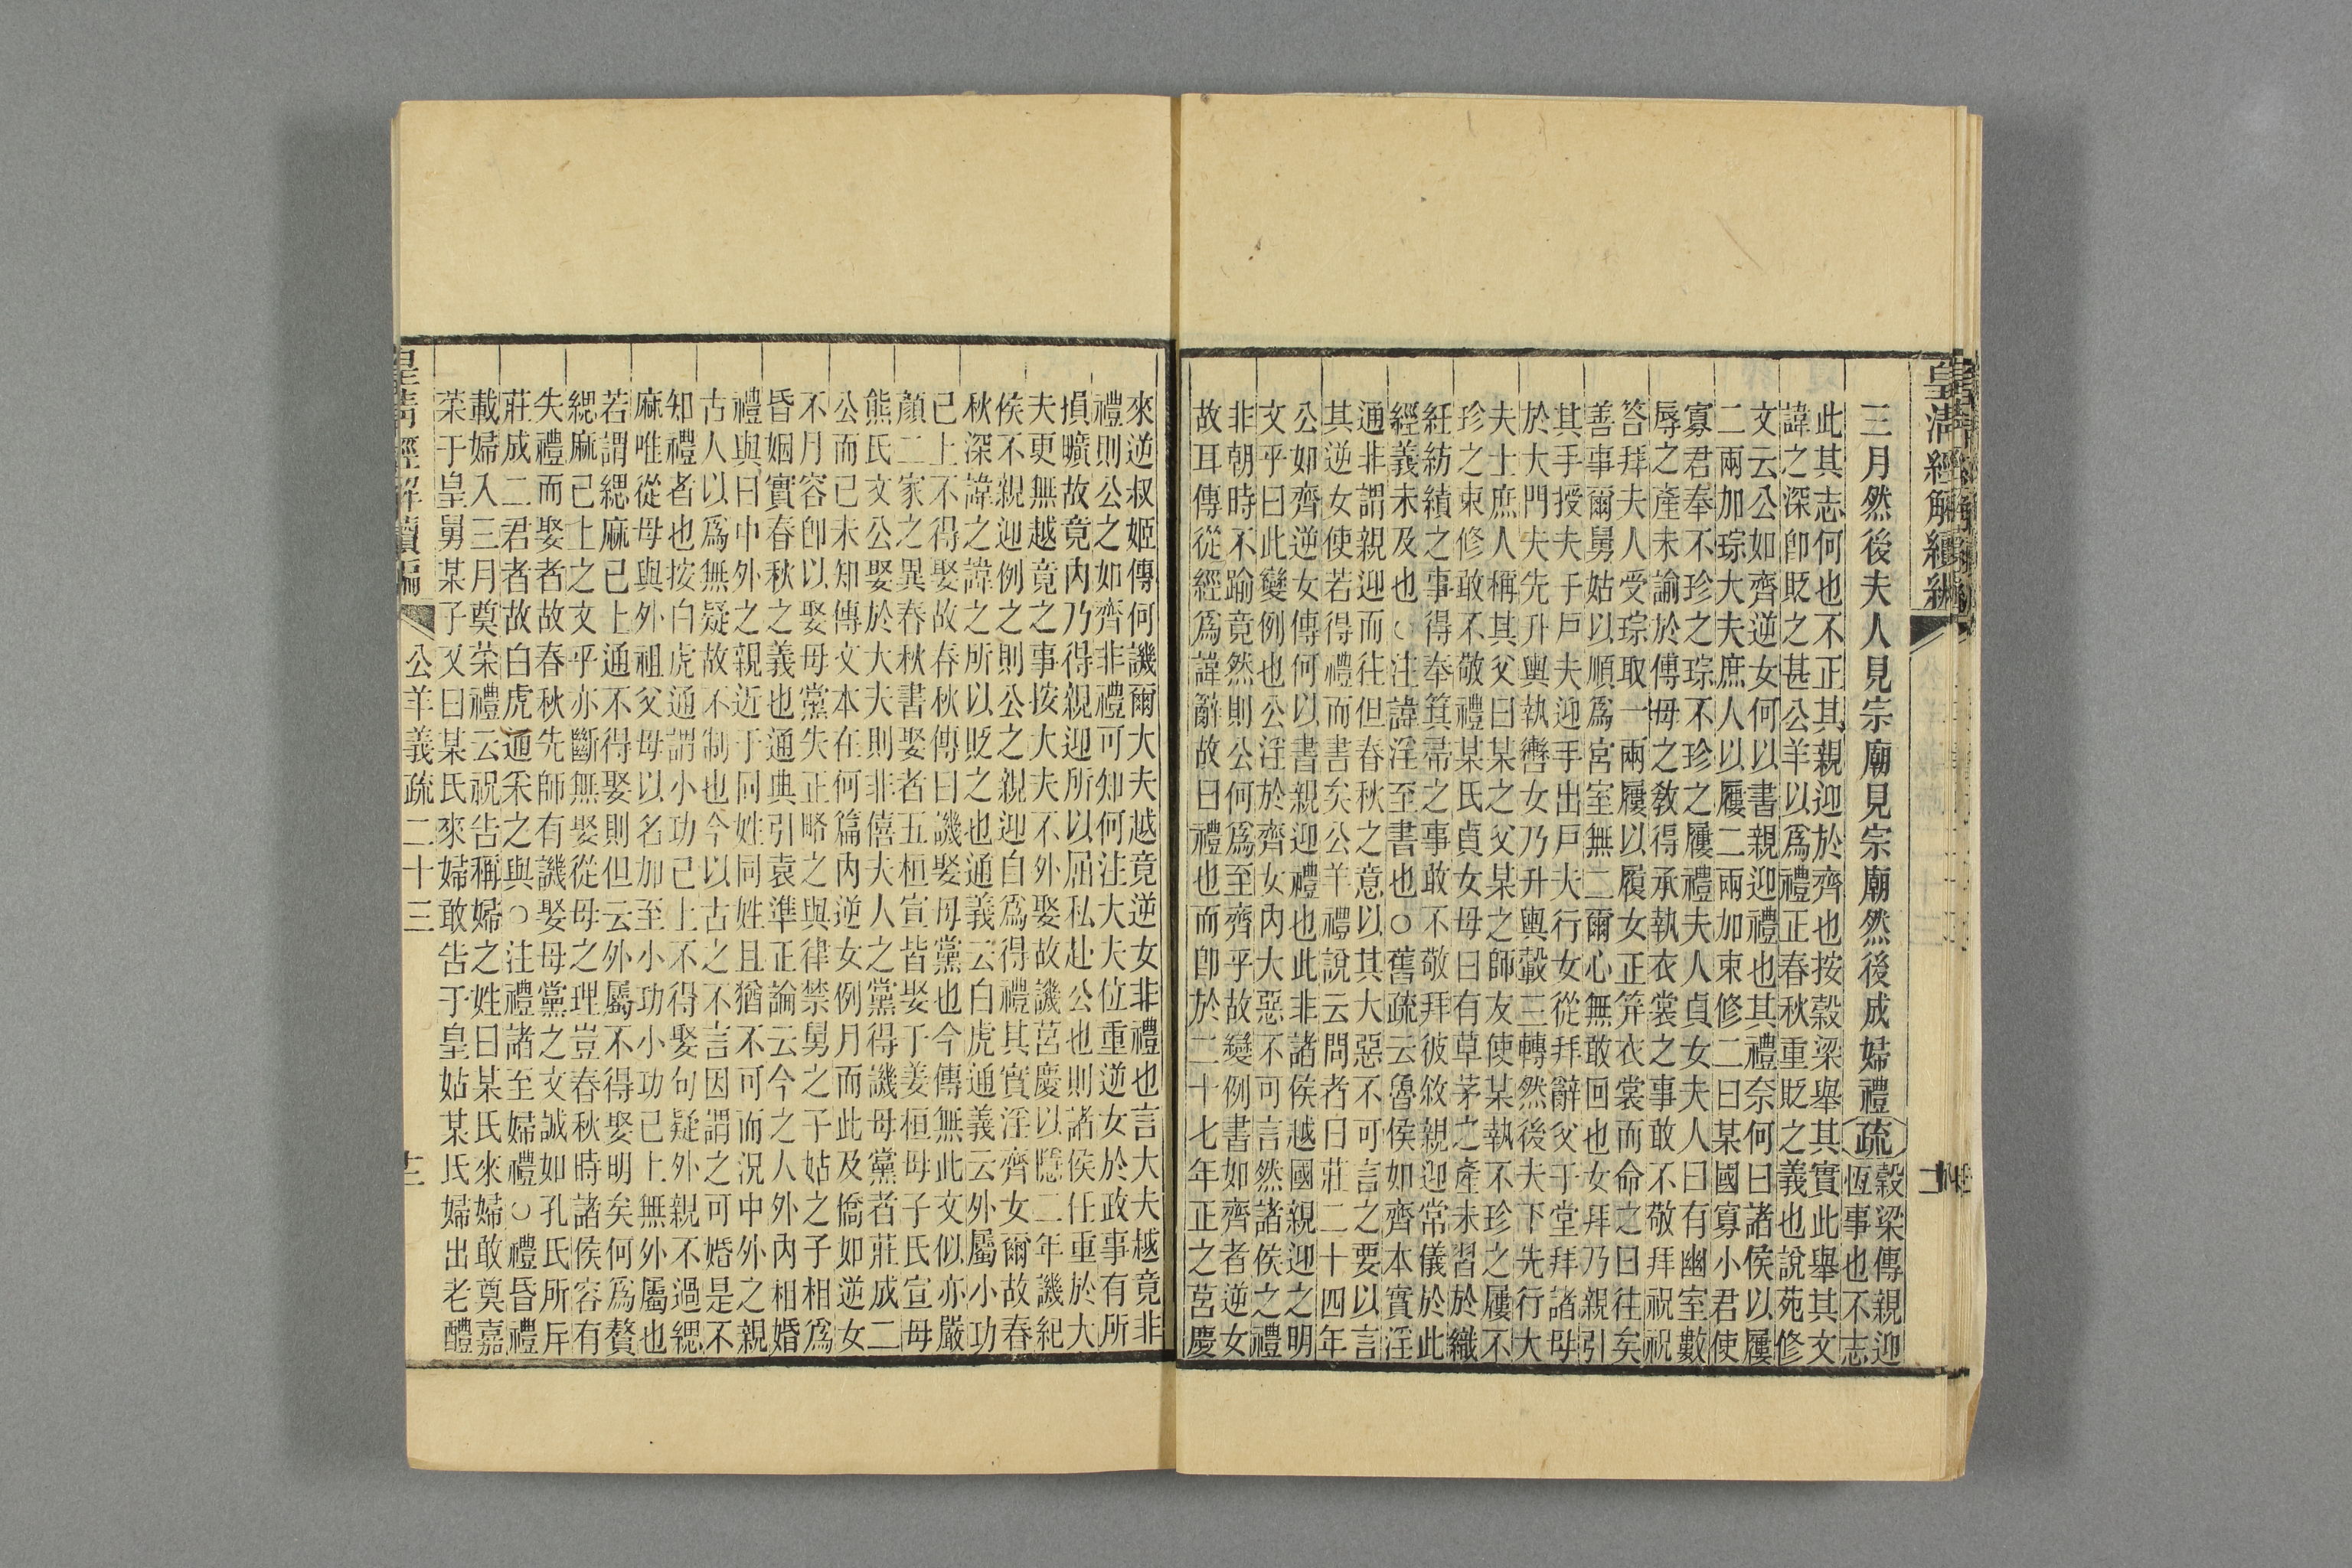 皇清經解續編
三月然後夫人見宗廟見宗廟然後成婦禮疏榖梁傳親迎
恆事也不志
此其志何也不正其親迎於齊也按穀梁舉其實此舉其文
諱之深卽貶之甚公羊以爲禮正春秋重貶之義也說苑修
文云公如齊逆女何以書親迎禮也其禮奈何曰諸侯以屨
二兩加琮大夫庶人以屨二兩加束修二曰某國寡小君使
寡君奉不珍之琮不珍之屨禮夫人貞女夫人曰有幽室數
辱之產未諭於傅母之敎得承執衣裳之事敢不敬拜祝祝
答拜夫人受琮取一兩屨以履女正筓衣裳而命之曰往矣
善事爾舅姑以順爲宮室無二爾心無敢回也女拜乃親引
其手授夫于戶夫迎手出戶夫行女從拜辭父于堂拜諸母
於大門夫先升輿執轡女乃升輿轂三轉然後夫下先行大
夫士庶人稱其父曰某之父某之師友使某執不珍之屨不
珍之束修敢不敬禮某氏貞女母曰有草茅之產未習於織
紝紡績之事得奉箕帚之事敢不敬拜彼敘親迎常儀於此
經義未及也○注諱淫至書也○舊疏云魯侯如齊本實淫
通非謂親迎而往但春秋之意以其大惡不可言之要以言
其逆女使若得禮而書矣公羊禮說云問者曰莊二十四年
公如齊逆女傳何以書親迎禮也此非諸侯越國親迎之明
文乎曰此變例也公淫於齊女內大惡不可言然諸侯之禮
非朝時不踰竟然則公何爲至齊乎故變例書如齊者逆女
故耳傳從經爲諱辭故曰禮也而卽於二十七年正之莒慶
來逆叔姬傳何譏爾大夫越竟逆女非禮也言大夫越竟非
禮則公之如齊非禮可知何注大夫位重逆女於政事有所
損曠故竟內乃得親迎所以屈私赴公也則諸侯任重於大
夫更無越竟之事按大夫不外娶故譏莒慶以隱二年譏紀
侯不親迎例之則公之親迎自爲得禮其實淫齊女爾故春
秋深諱之諱之所以貶之也通義云白虎通義云外屬小功
已上不得娶故春秋傳曰譏娶母黨也今傳無此文似亦嚴
顏二家之異春秋書娶者五桓宣皆娶于姜桓母子氏宣母
熊氏文公娶於大夫則非僖夫人之黨得譏母黨者莊成二
公而已未知傳文本在何篇內逆女例月而此及僑如逆女
不月容卽以娶母黨失正略之與律禁舅之子姑之子相爲
昏姻實春秋之義也通典引袁準正論云今之人外內相婚
禮與曰中外之親近于同姓同姓且猶不可而況中外之親
古人以爲無疑故不制也今以古之不言因謂之可婚是不
知禮者也按白虎通謂小功已上不得娶句疑外親不過緦
麻唯從母與外祖父母以名加至小功小功已上無外屬也
若謂緦麻已上通不得娶則但云外屬不得娶明矣何爲贅
緦麻已上之文乎亦斷無娶從母之理豈春秋時諸侯容有
失禮而娶者故春秋先師有譏娶母黨之文誠如孔氏所斥
莊成二君者故白虎通采之與○注禮諸至婦禮○禮昏禮
載婦入三月奠菜禮云祝告稱婦之姓曰某氏來婦敢奠嘉
菜于皇舅某子又曰某氏來婦敢告于皇姑某氏婦出老醴
皇清經解續編 公羊義疏二十三